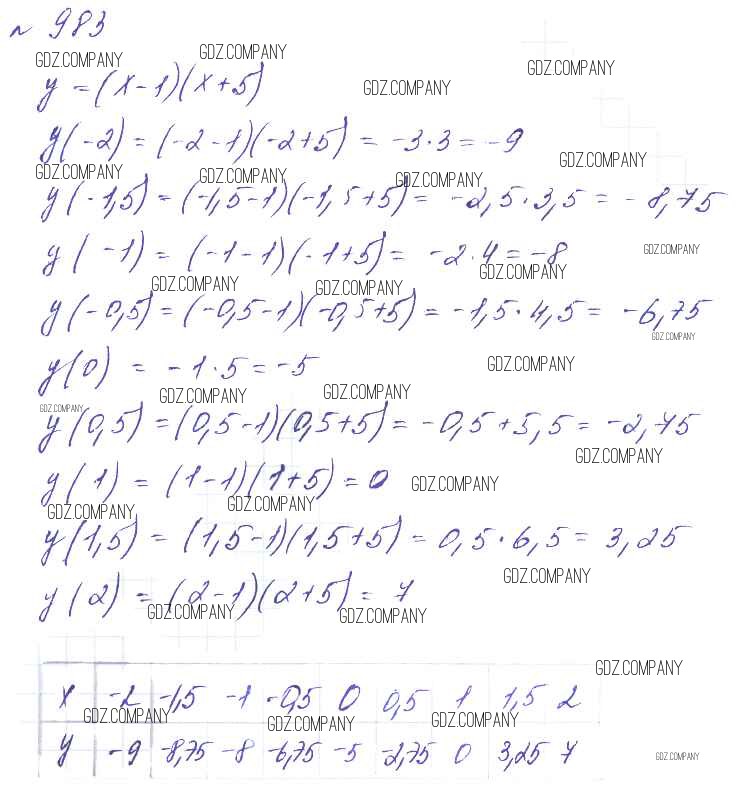 № 983
GDZ.COMPANY GDZ.COMPANY GDZ.COMPANY
y = (x-1)(x+5) GDZ.COMPANY
y(-2) = (-2-1)(-2+5) = -3·3 = -9
GDZ.COMPANY GDZ.COMPANY GDZ.COMPANY GDZ.COMPANY
y(-1,5) = (-1,5-1)(-1,5+5) = -2,5·3,5 = -8,75
y(-1) = (-1-1)(-1+5) = -2·4 = -8 GDZ.COMPANY
GDZ.COMPANY GDZ.COMPANY GDZ.COMPANY
y(-0,5) = (-0,5-1)(-0,5+5) = -1,5·4,5 = -6,75
GDZ.COMPANY
y(0) = -1·5 = -5 GDZ.COMPANY
GDZ.COMPANY GDZ.COMPANY GDZ.COMPANY
y(0,5) = (0,5-1)(0,5+5) = -0,5+5,5 = -2,75
GDZ.COMPANY
y(1) = (1-1)(1+5) = 0 GDZ.COMPANY
GDZ.COMPANY GDZ.COMPANY
y(1,5) = (1,5-1)(1,5+5) = 0,5·6,5 = 3,25
GDZ.COMPANY
y(2) = (2-1)(2+5) = 7
GDZ.COMPANY GDZ.COMPANY
GDZ.COMPANY
x -2 -1,5 -1 -0,5 0 0,5 1 1,5 2
GDZ.COMPANY GDZ.COMPANY GDZ.COMPANY
y -9 -8,75 -8 -6,75 -5 -2,75 0 3,25 7
GDZ.COMPANY